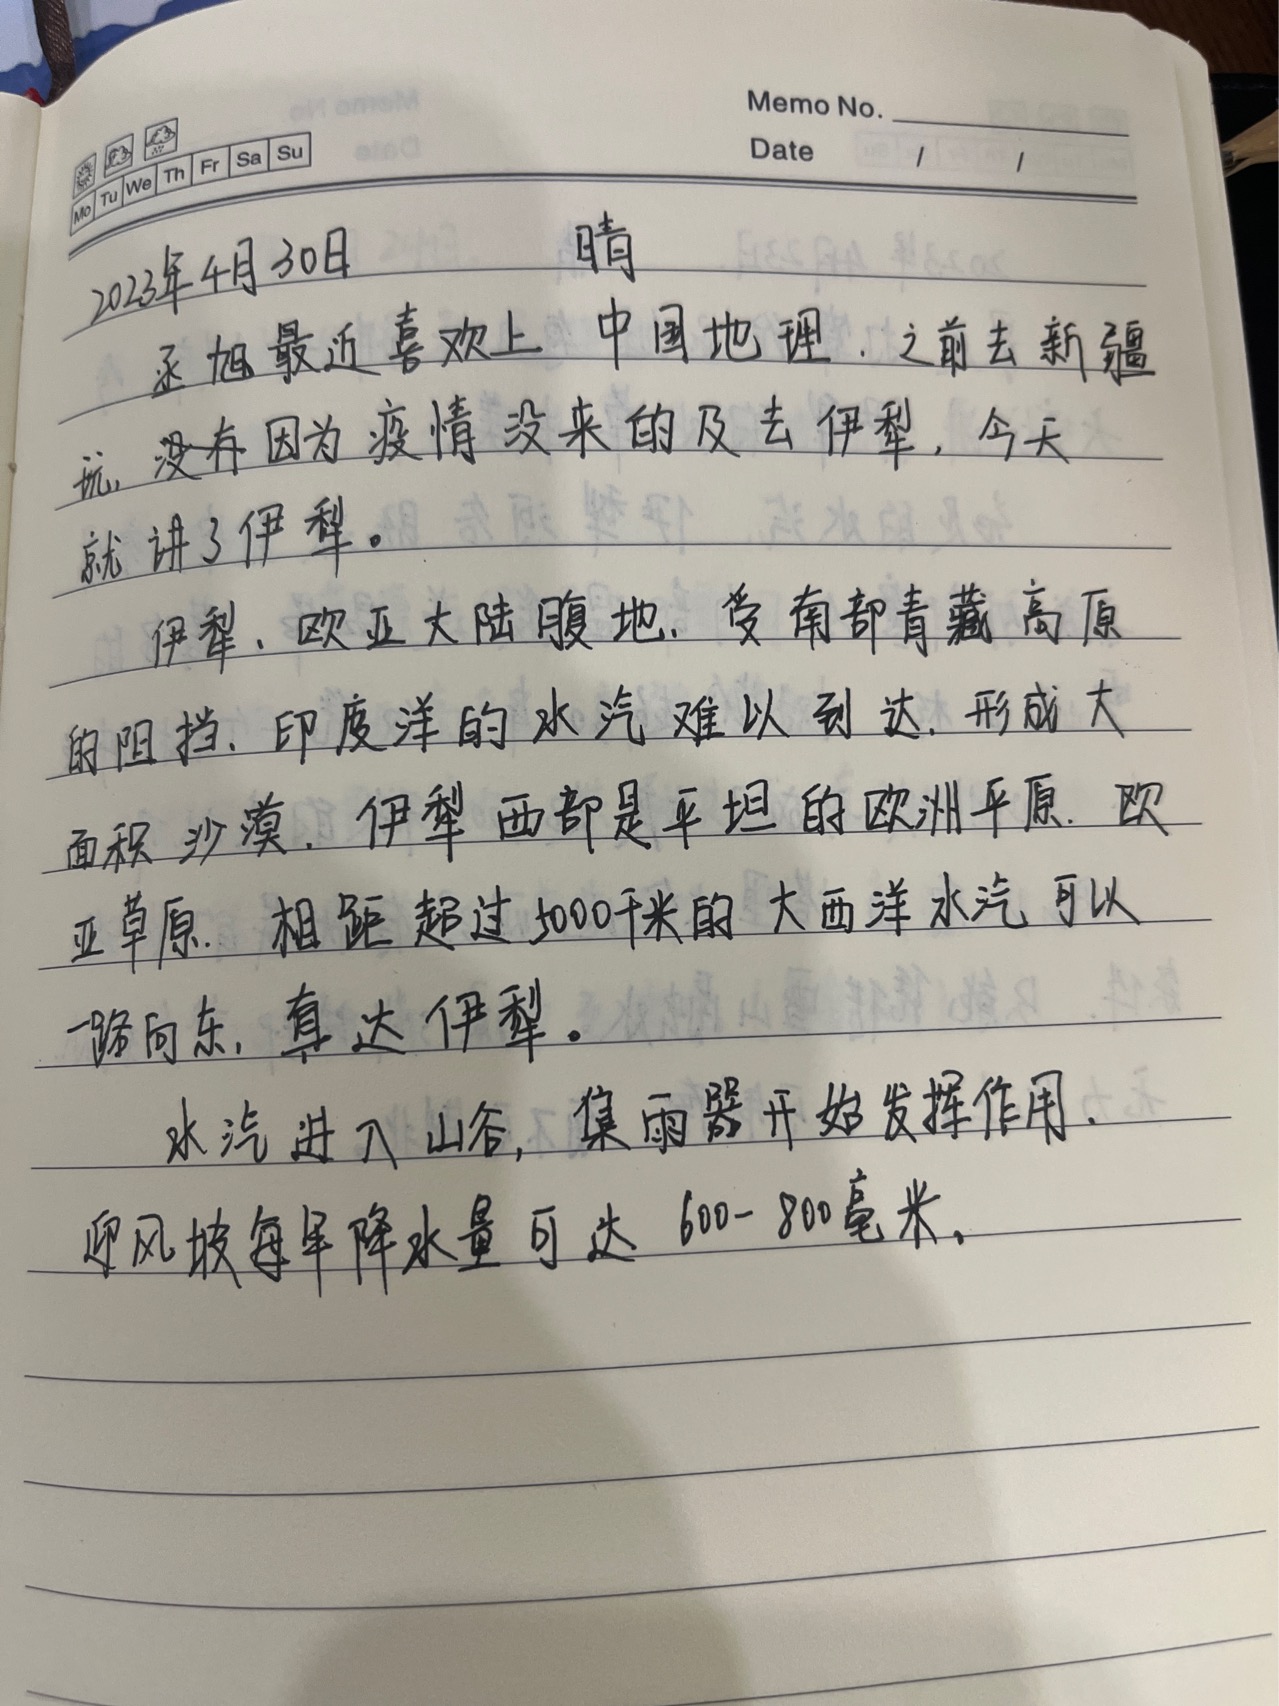 Memo No.
Mo Tu We Th Fr Sa Su
Date / /
2023年4月30日 晴
丞旭最近喜欢上 中国地理,之前去新疆
玩,没有因为疫情没来的及去伊犁,今天
就讲了伊犁。
伊犁,欧亚大陆腹地,受南部青藏高原
的阻挡,印度洋的水汽难以到达,形成大
面积沙漠,伊犁西部是平坦的欧洲平原,欧
亚草原,相距超过5000千米的大西洋水汽可以
一路向东,直达伊犁。
水汽进入山谷,集雨器开始发挥作用,
迎风坡每年降水量可达 600-800毫米。